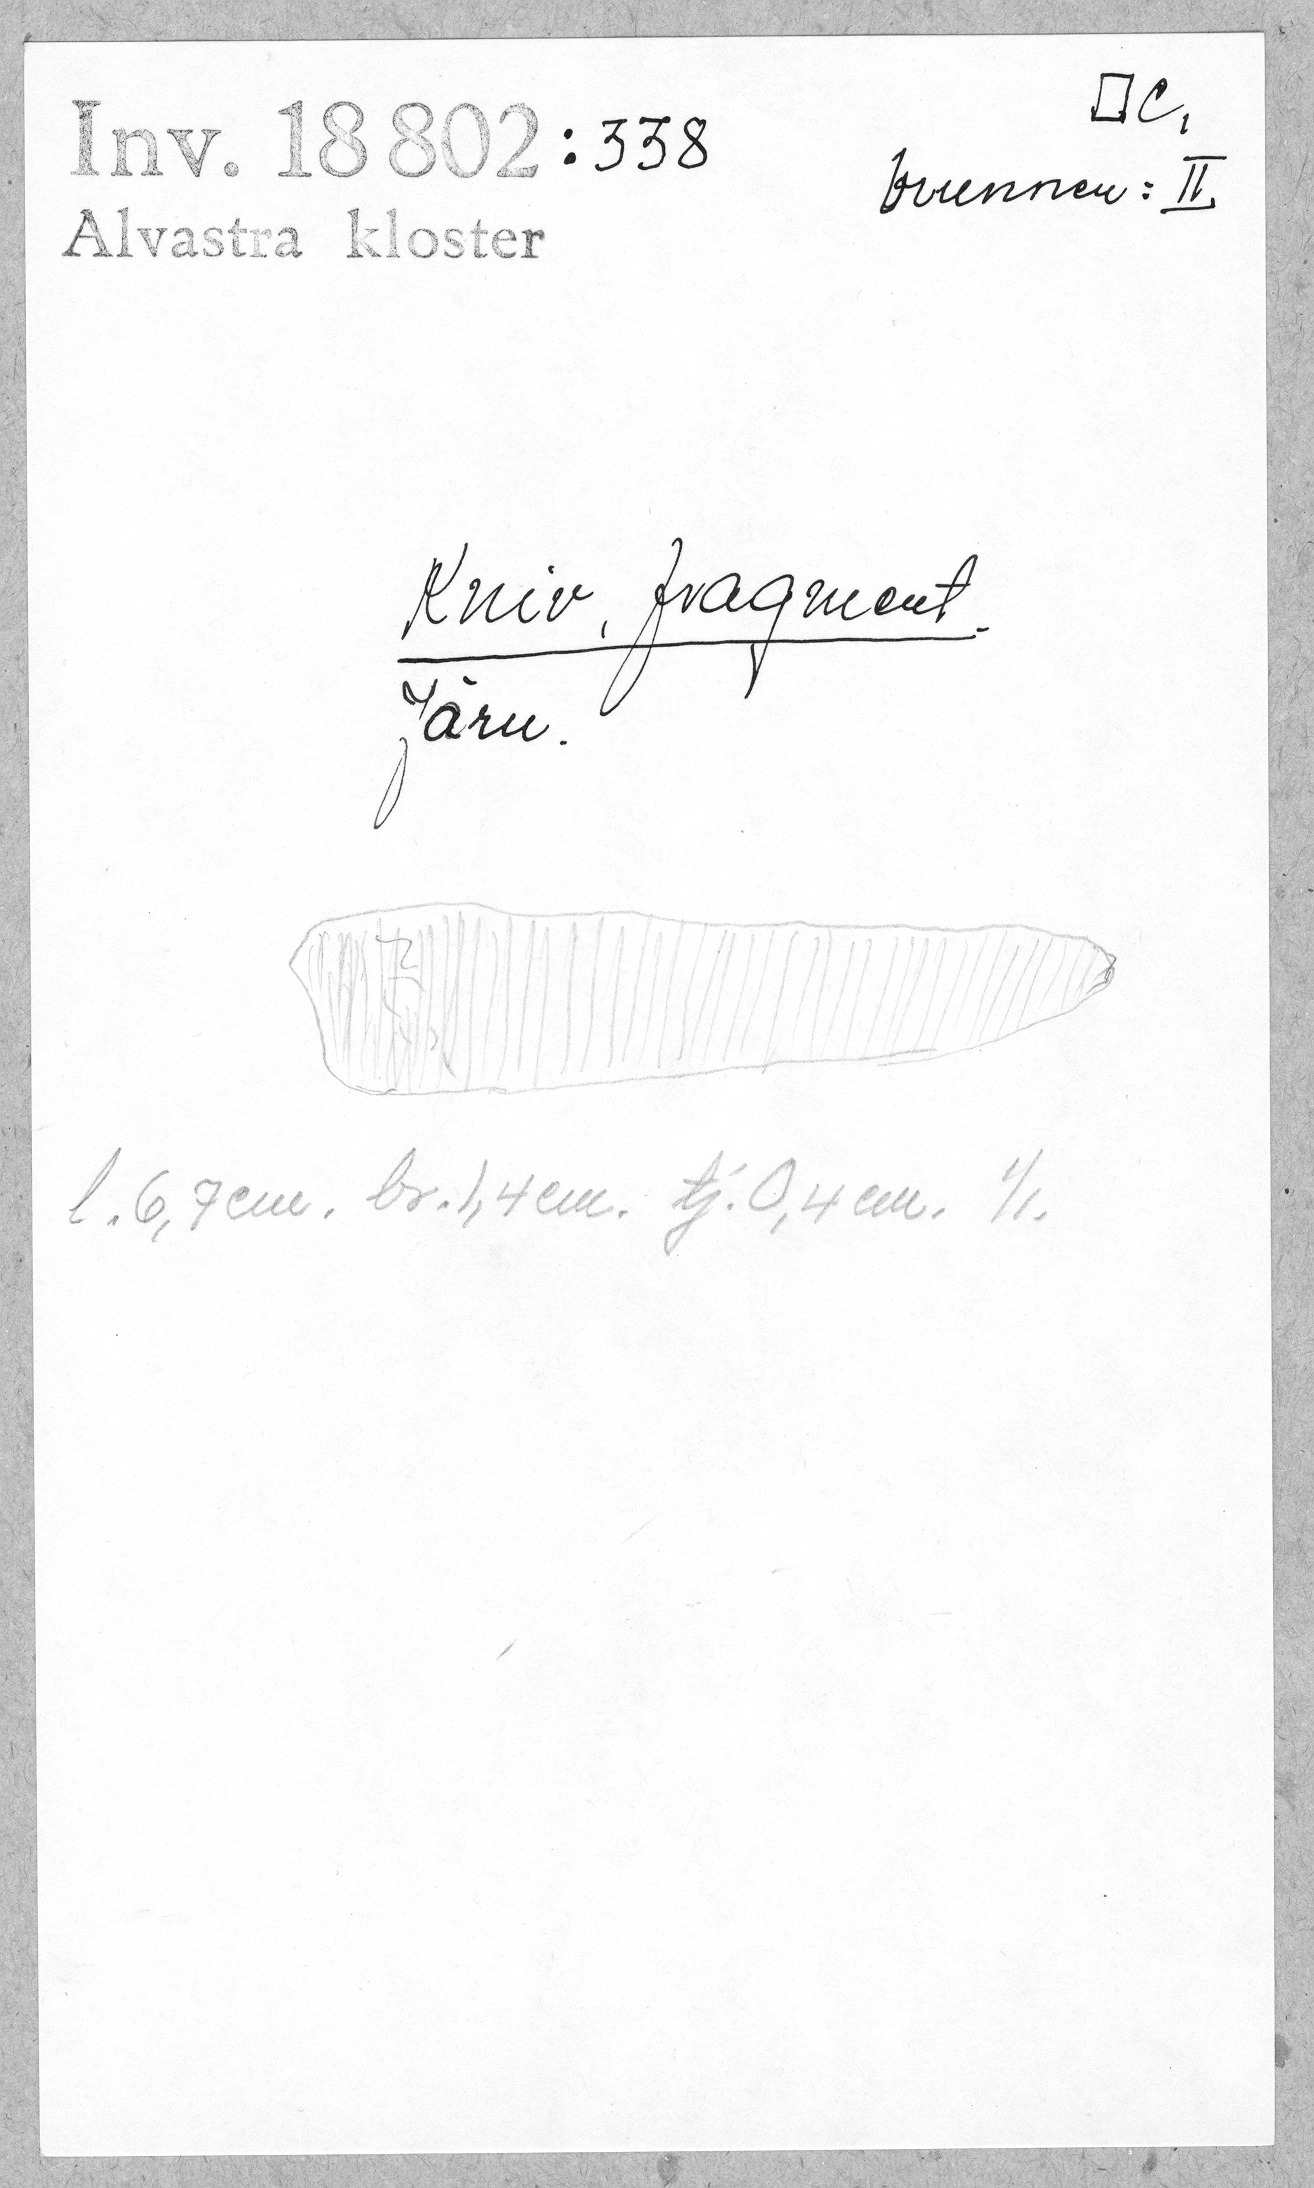 Inv. 18 802:338
Alvastra kloster
□C,
brunnen: II
Kniv, fragment.
Järn.
l. 6,7 cm. br. 1,4 cm. tj. 0,4 cm. 1/1.